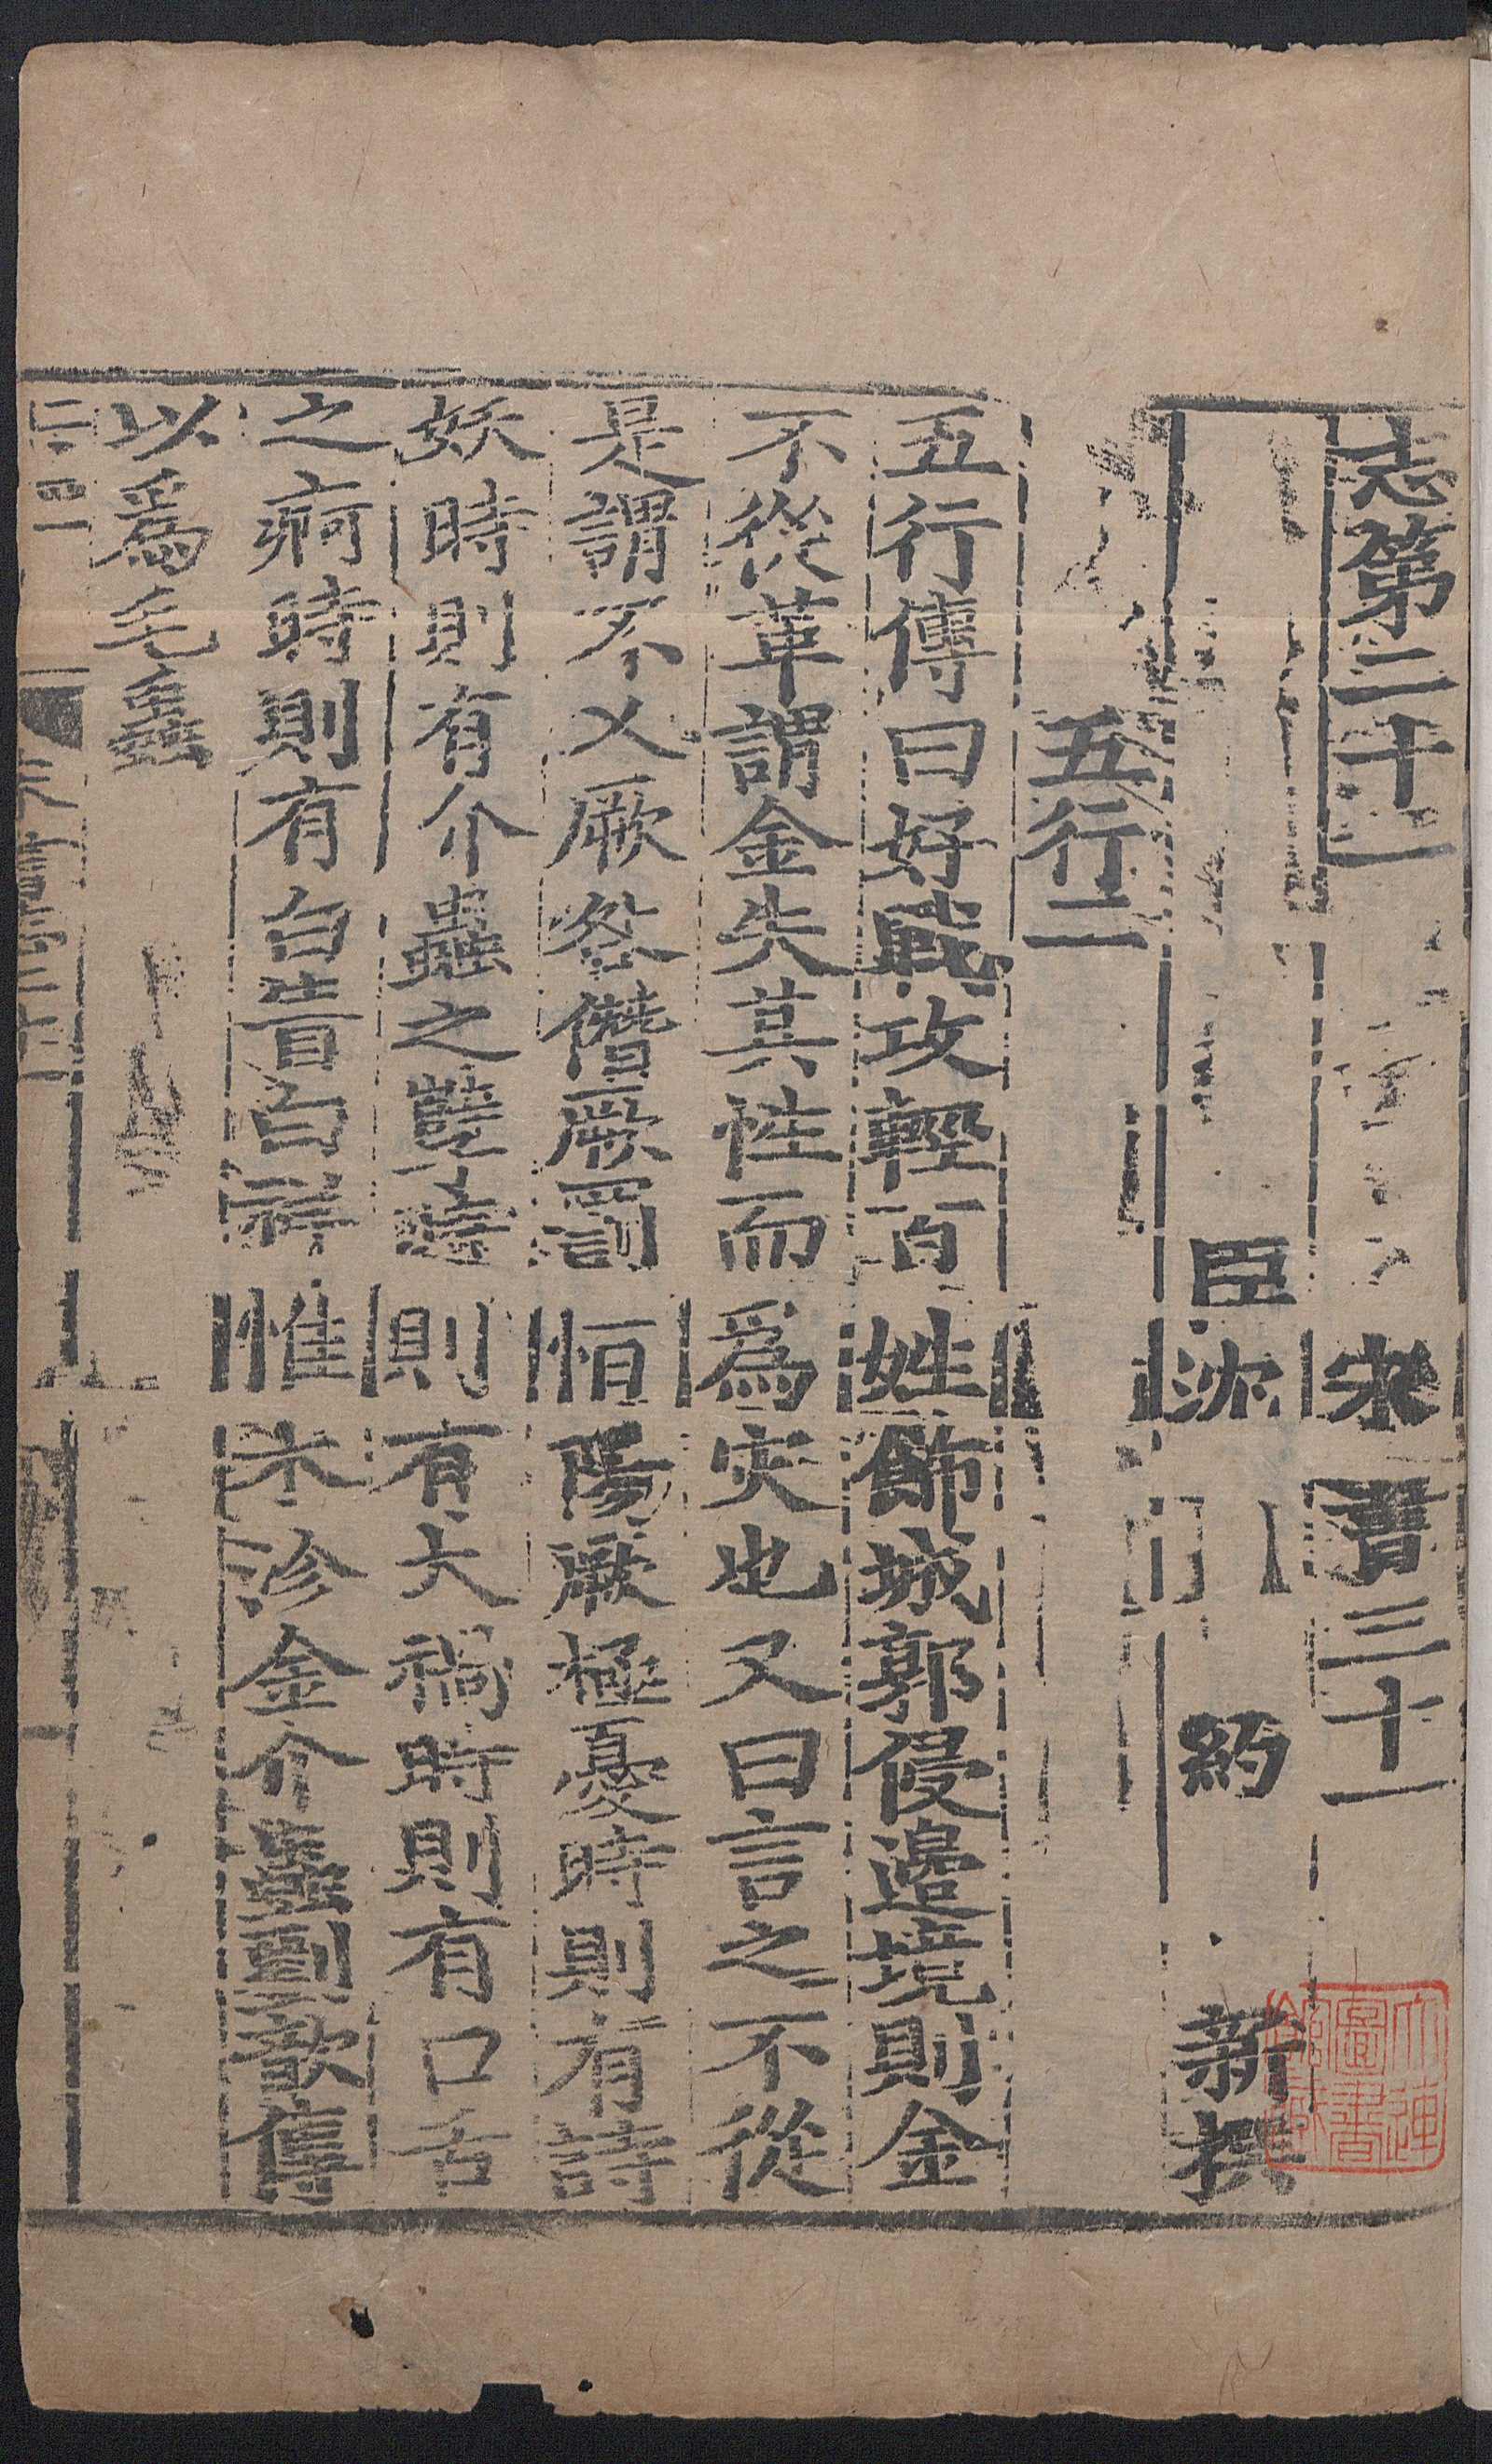 志第二十一　宋書三十一
臣沈約新撰
五行二
五行傳曰好戰攻輕百姓飾城郭侵邊境則金
不從革謂金失其性而爲災也又曰言之不從
是謂不乂厥咎僭厥罰恒陽厥極憂時則有詩
妖時則有介蟲之孽時則有犬禍時則有口舌
之痾時則有白眚白祥惟木沴金介蟲劉歆傳
以爲毛蟲
大連圖書館藏